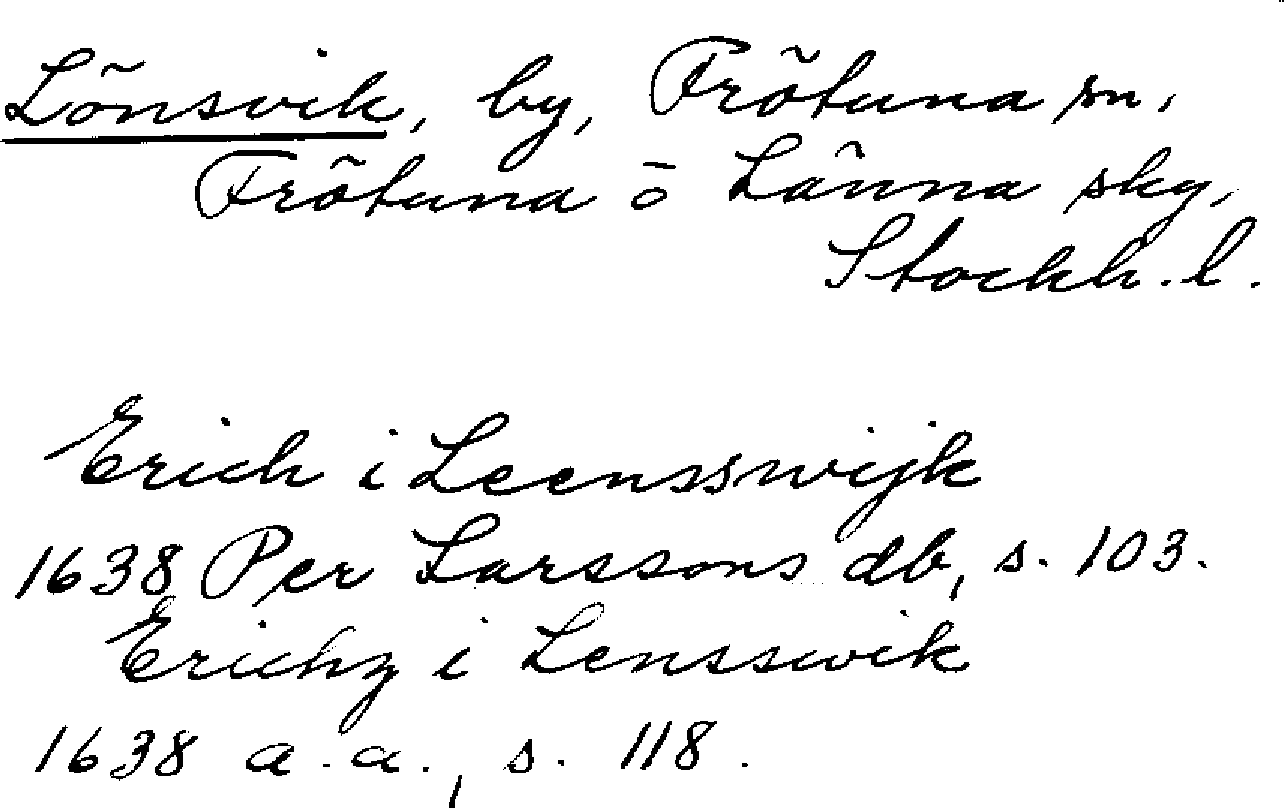 Lönsvik, by, Frötuna sn,
Frötuna o Länna skg,
Stockh. l.
Erich i Leensswijk
1638 Per Larssons db, s. 103.
Erichz i Lensswik
1638 a.a., s. 118.